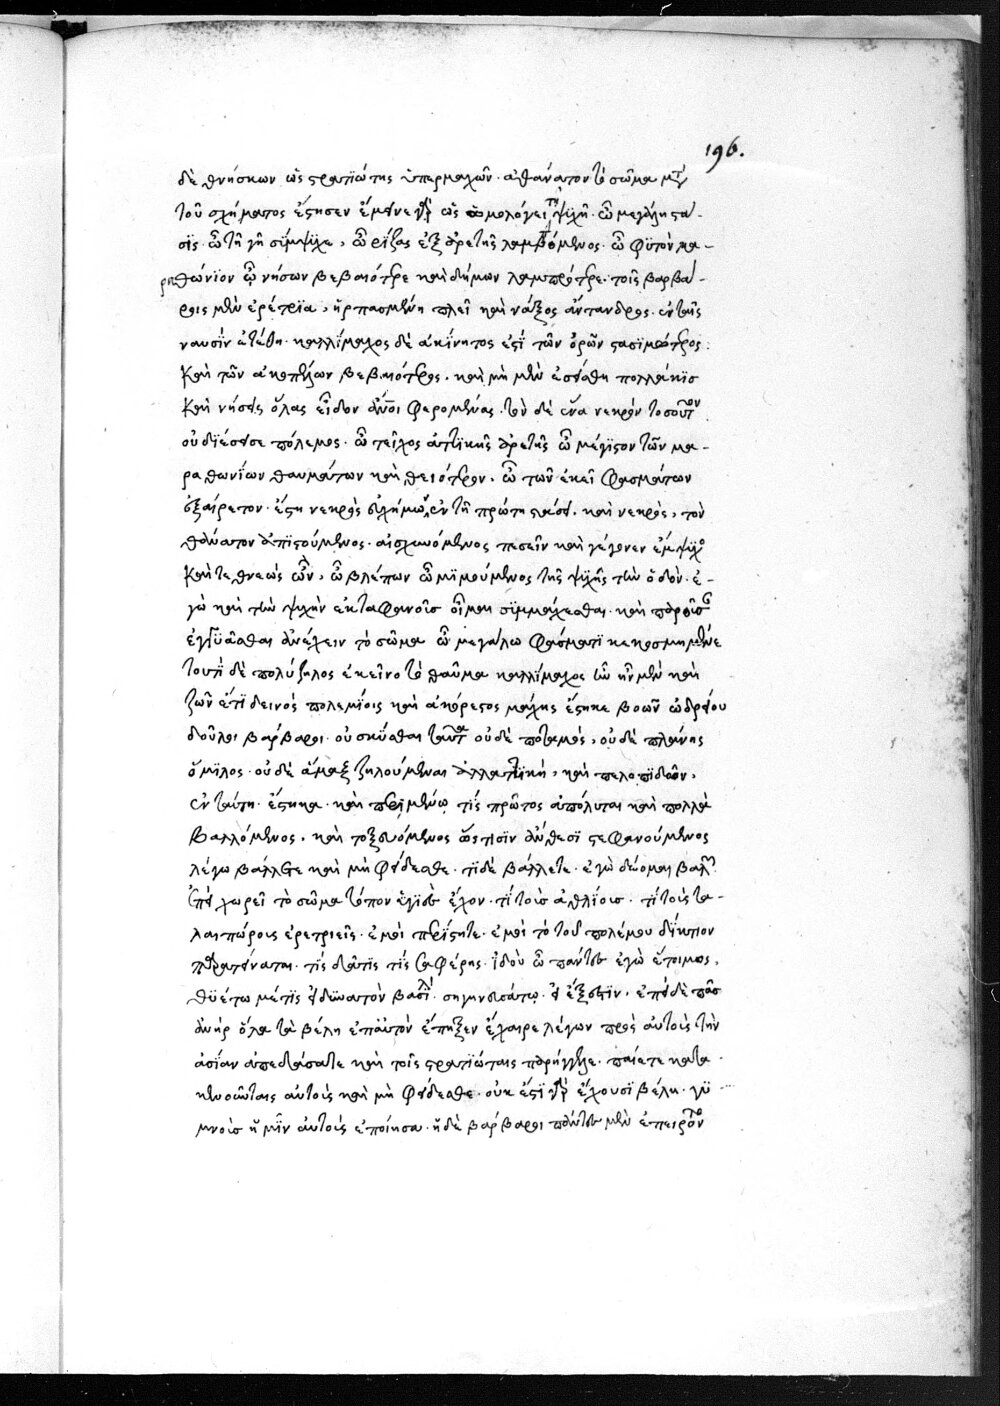 196.
δὲ θνήσκων ὡς στρατϊώτης ὑπερμαχῶν· ἀθάνατον τὸ σῶμα μετὰ
τοῦ σχήματος ἔστησεν ἔμεινε γὰρ ὡς ὁμολόγει τῆ ψϋχῆ· ὦ μεγάλη στά-
σϊς· ὦ τῆ γῆ σύμψϋχε, ὦ ῥίζας ἐξ ἀρετῆς λαμβόμενος· ὦ φϋτὸν μα-
ραθώνϊον ὦ νήσων βεβαιότερε καὶ δήμων λαμπρότερε· τοῖς βαρβά-
ροις μὲν ἐρέτρϊα, ἡρπασμένη πλεῖ καὶ νάξος ἄντανδρος· ἐν ταῖς
ναυσὶν ἐτέθη· καλλίμαχος δὲ ἀκίνητος ἐστὶ τῶν ὀρῶν στασϊμώτερος·
καὶ τῶν σκοπέλων βεβαιότερος· καὶ μὴ μὲν ἐστάθη πολλάκϊς
καὶ νήσους ὅλας εἶδον ἄνοι φερομένας· τὸν δὲ ἕνα νεκρὸν τοσοῦτον
οὐ διέσεισε πόλεμος· ὦ τεῖχος ἀττϊκῆς ἀρετῆς ὦ μέγϊστον τῶν μα-
ραθωνίων θαυμάτων καὶ θειότερον· ὦ τῶν ἐκεῖ φασμάτων
ἐξαίρετον· ἔστη νεκρὸς εὐσχήμων ἐν τῆ πρώτη στάσει· καὶ νεκρὸς, τὸν
θάνατον ἀπϊστούμενος· αἰσχυνόμενος πεσεῖν καὶ γέγονεν ἔμψϋχος
καὶ τεθνεὼς ὤν, ὦ βλέπων ὦ μϊμούμενος τῆς ψϋχῆς τὴν ὁδὸν· ἐ-
γὼ καὶ τὴν ψϋχὴν ἐκ ταφανοῦς οἶμαι σϋμμάχεσθαι· καὶ
ἐγγϋᾶσθαι ἀνέχειν τὸ σῶμα ὦ μεγάλω φάσματϊ κεκοσμημένε
τουτὶ δὲ πολύζηλος ἐκεῖνο τὸ θαῦμα καλλίμαχος ὢν ἦν μὲν καὶ
ζῶν ἔτϊ δεινὸς πολεμίοις καὶ ἀκόρεστος μάχης ἔστηκε βοῶν ὧδρεύου
δοῦλοι βάρβαροι· οὐ σκύθαι ταῦτα οὐδὲ ποταμὸς, οὐδὲ πλάνης
ὅμϊλος· οὐδὲ ἅμαξ ζηλούμεναι ἀλλ ἀττϊκὴ, καὶ πελοπϊδῶν,
ἐνταύτη· ἔστηκα· καὶ περϊμένω τίς πρῶτος ἀπόλυται καὶ πολλὰ
βαλλόμενος· καὶ τοξευόμενος ὥς τισϊν ἄνθεσϊ στεφανούμενος
λέγω βάλλετε καὶ μὴ φείδεσθε· τί δὲ βάλλετε· ἐγὼ δέομαι βαλ
χωρεῖ τὸ σῶμα τόπον ἔχον· τί τοὺς ἀθλίους· τί τοὺς τα-
λαιπώρους ἐρετριεῖς· ἐμοὶ περίστητε· ἐμοὶ τὸ τοῦ πολέμου δίκτϋον
περατείναται· τίς δάτϊς τίς ἀρταφέρης· ἰδοὺ ὦ πάντες ἐγὼ ἕτοιμος,
θϋέτω με τϊς εἰ δϋνατὸν βασιλεῖ· σηγηνευσάτω· εἰ ἔξεστϊν· ἐπεὶ δὲ πᾶσ
ἀνὴρ ὅλα τὰ βέλη ἐπ αὐτὸν ἔπηξεν ἔχαιρε λέγων πρὸς αὐτοὺς τὴν
ἀσίαν ἀπεδιώσατε καὶ τοῖς στρατϊώταις παρήγγελε· παίετε κατα-
κενοῦντας αὐτοὺς καὶ μὴ φείδεσθε· οὐκ ἔστϊ γὰρ ἔχουσϊ βέλη· γϋ-
μνοὺς ἡμῖν αὐτοὺς ἐποίησα· ἡ δὲ βάρβαροι πάντες μὲν ἐπειρῶντο